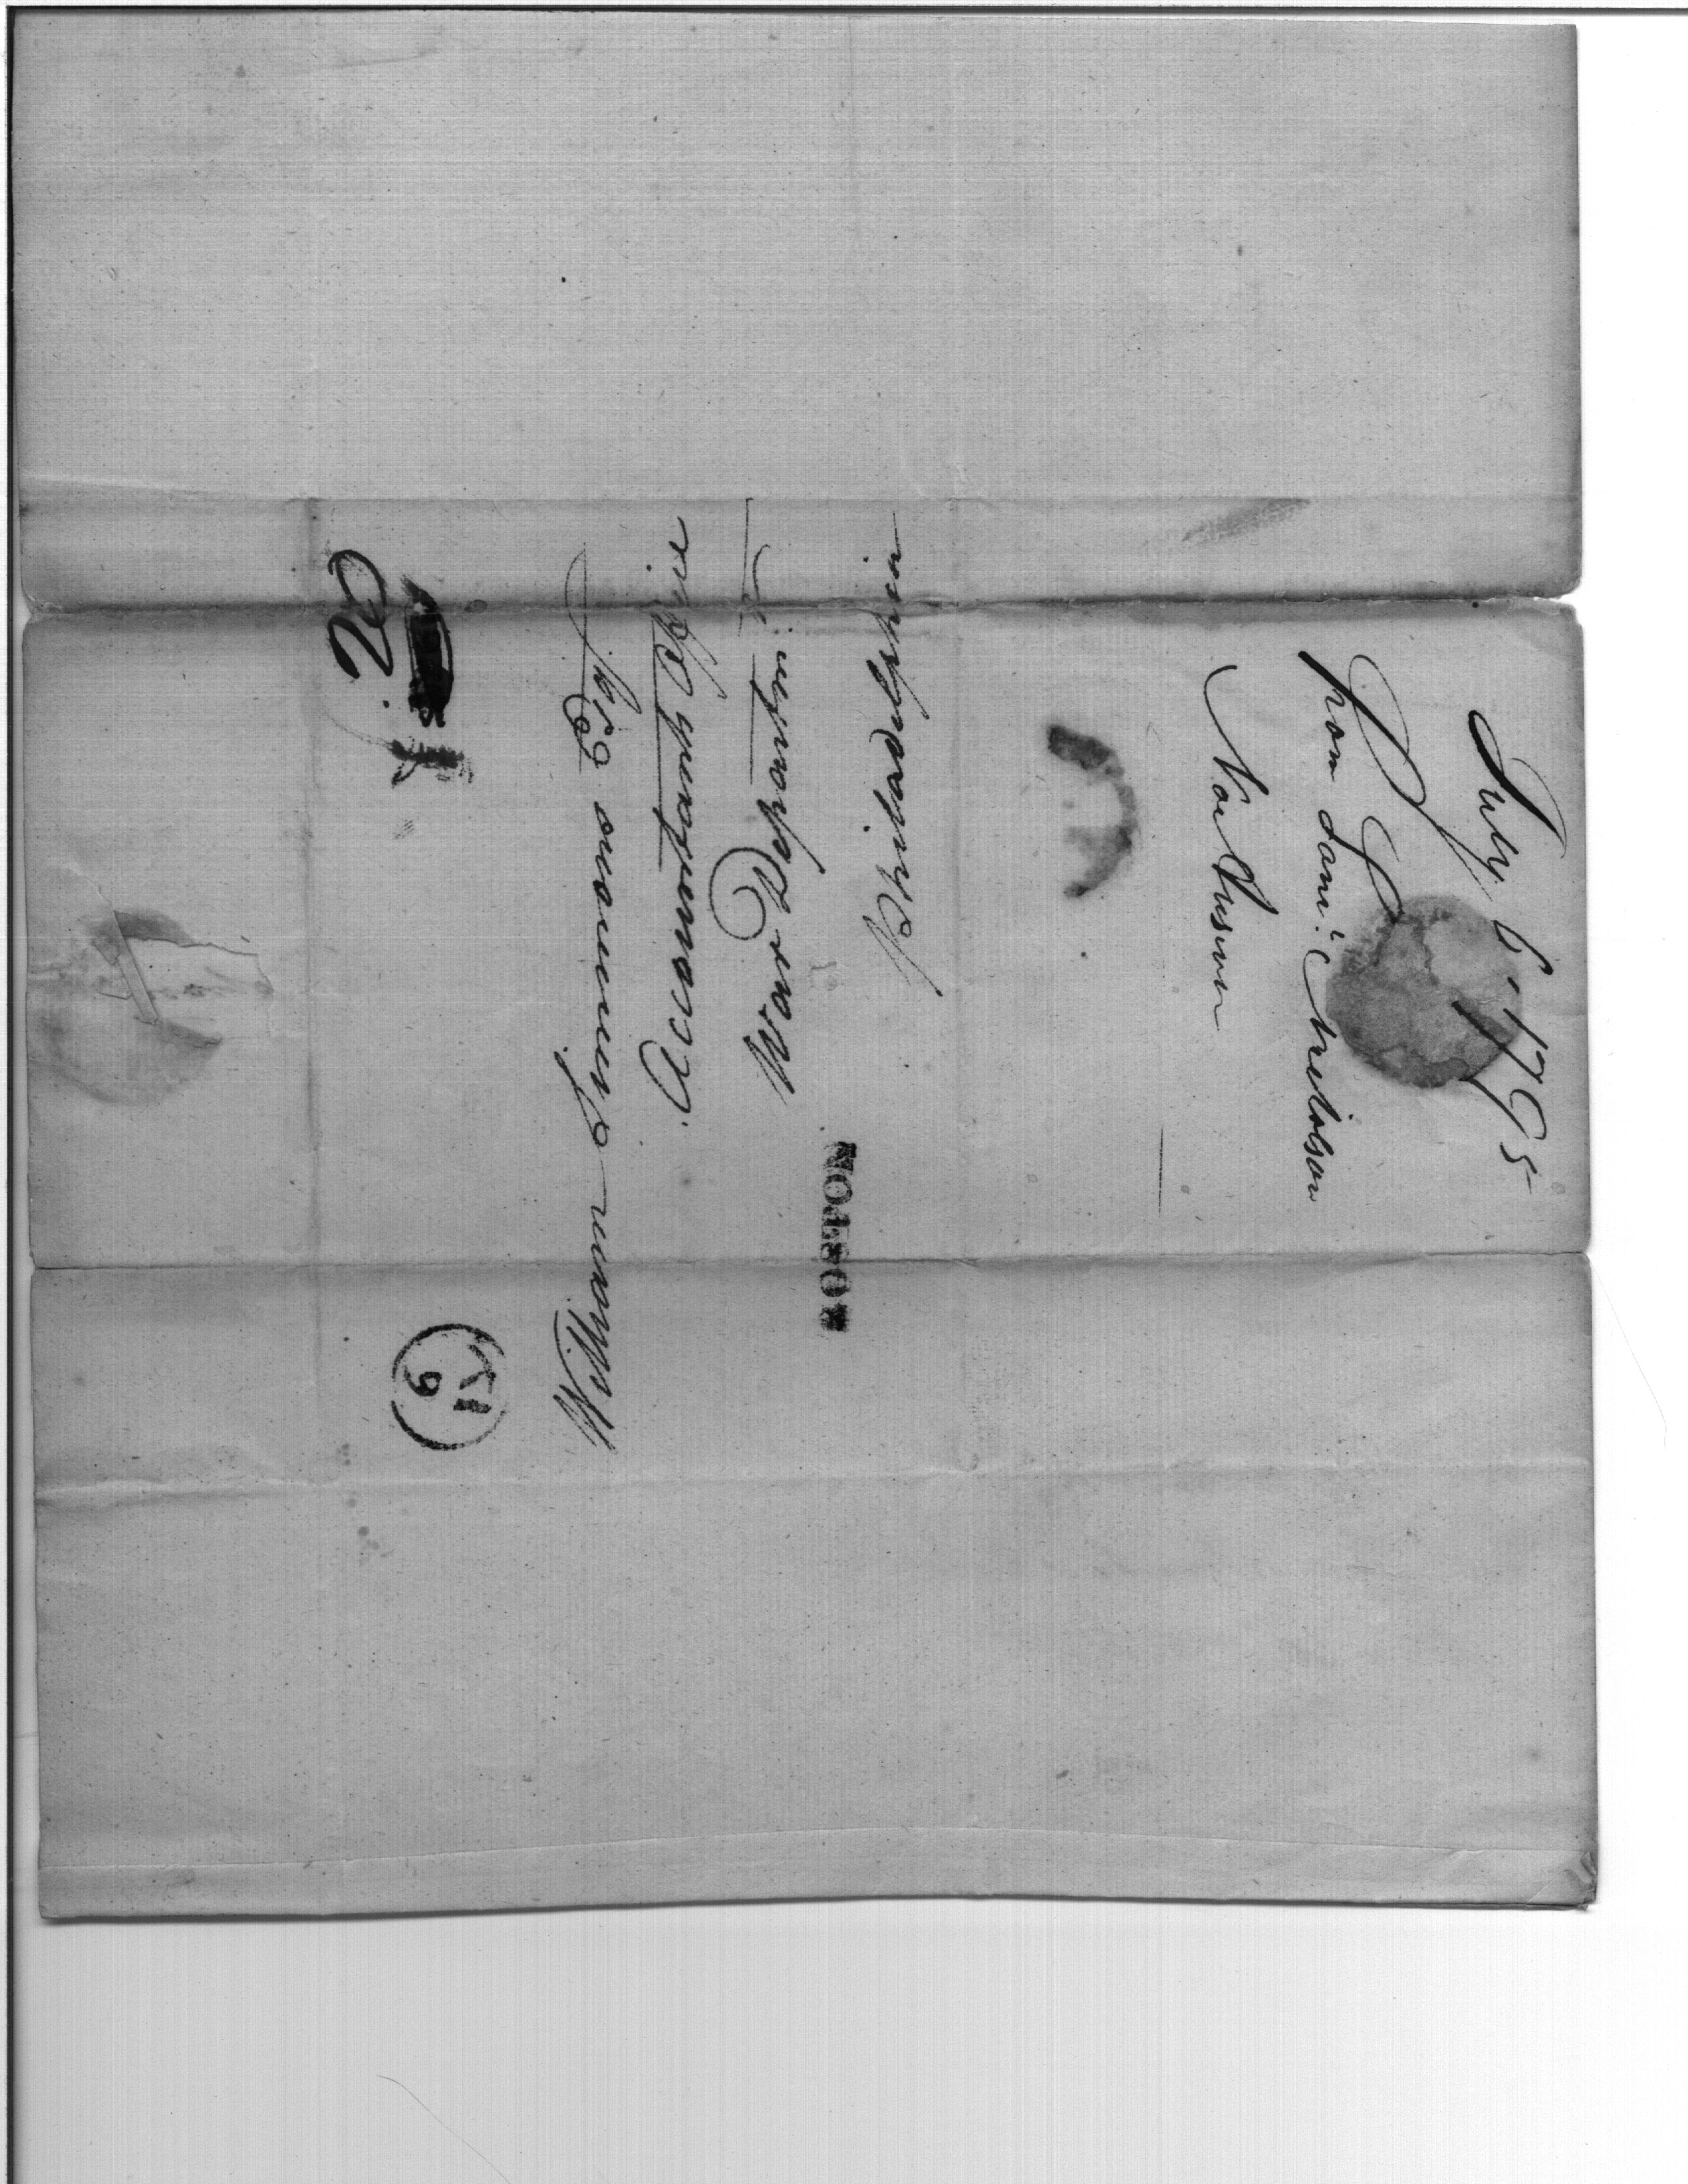 July 6. 1795
from Saml. Nicholson
No Answer
BOSTON
William Simmons Esqr.
Accountant Office
War Department
Philadelphia
IY
9
20.